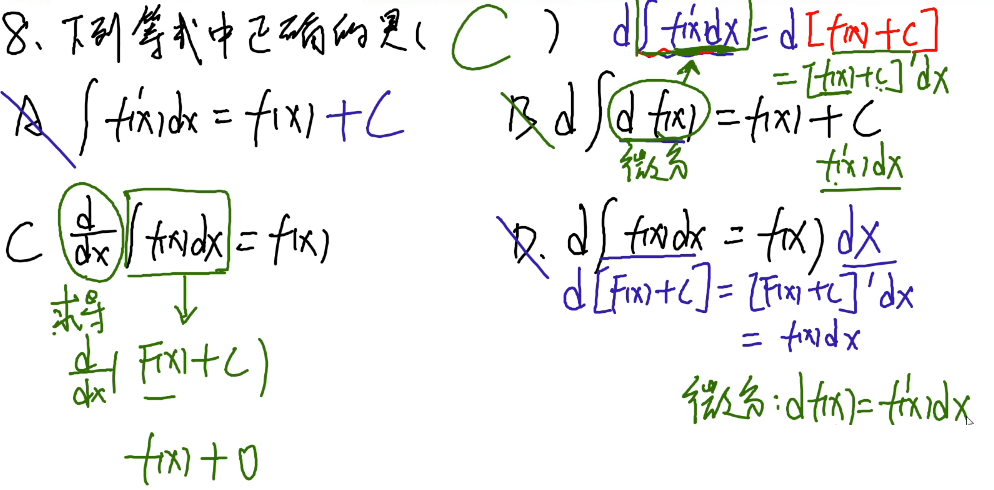 8、下列等式中正确的是( C )
d∫f'(x)dx = d[f(x)+C]
= [f(x)+C]'dx
A ∫f'(x)dx = f(x) +C
B d∫d f(x) = f(x) + C
微分
f'(x)dx
C d/dx ∫f(x)dx = f(x)
求导
d/dx( F(x)+C )
f(x) + 0
D. d∫f(x)dx = f(x) dx
d[F(x)+C] = [F(x)+C]'dx
= f(x)dx
微分:df(x)=f'(x)dx